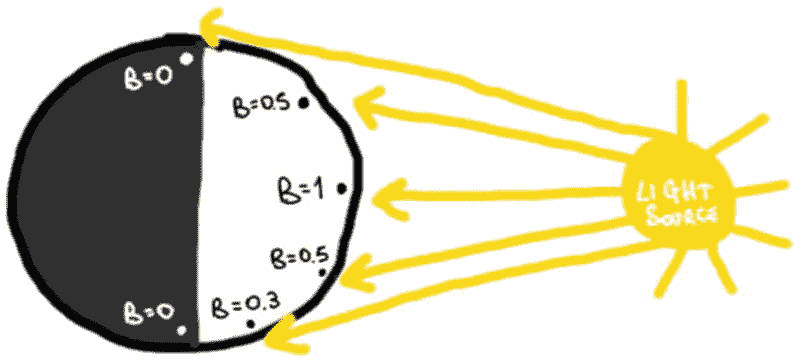 B=0
B=0.5
B=1
B=0.5
B=0.3
B=0
LIGHT
SOURCE